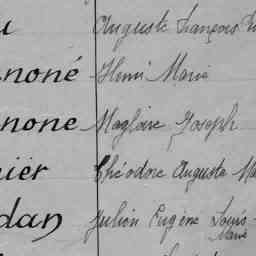 Auguste François
noné Henri Marie
none Magloire Joseph
ier Théodore Auguste Ma
dan Julien Eugène Louis
Marie